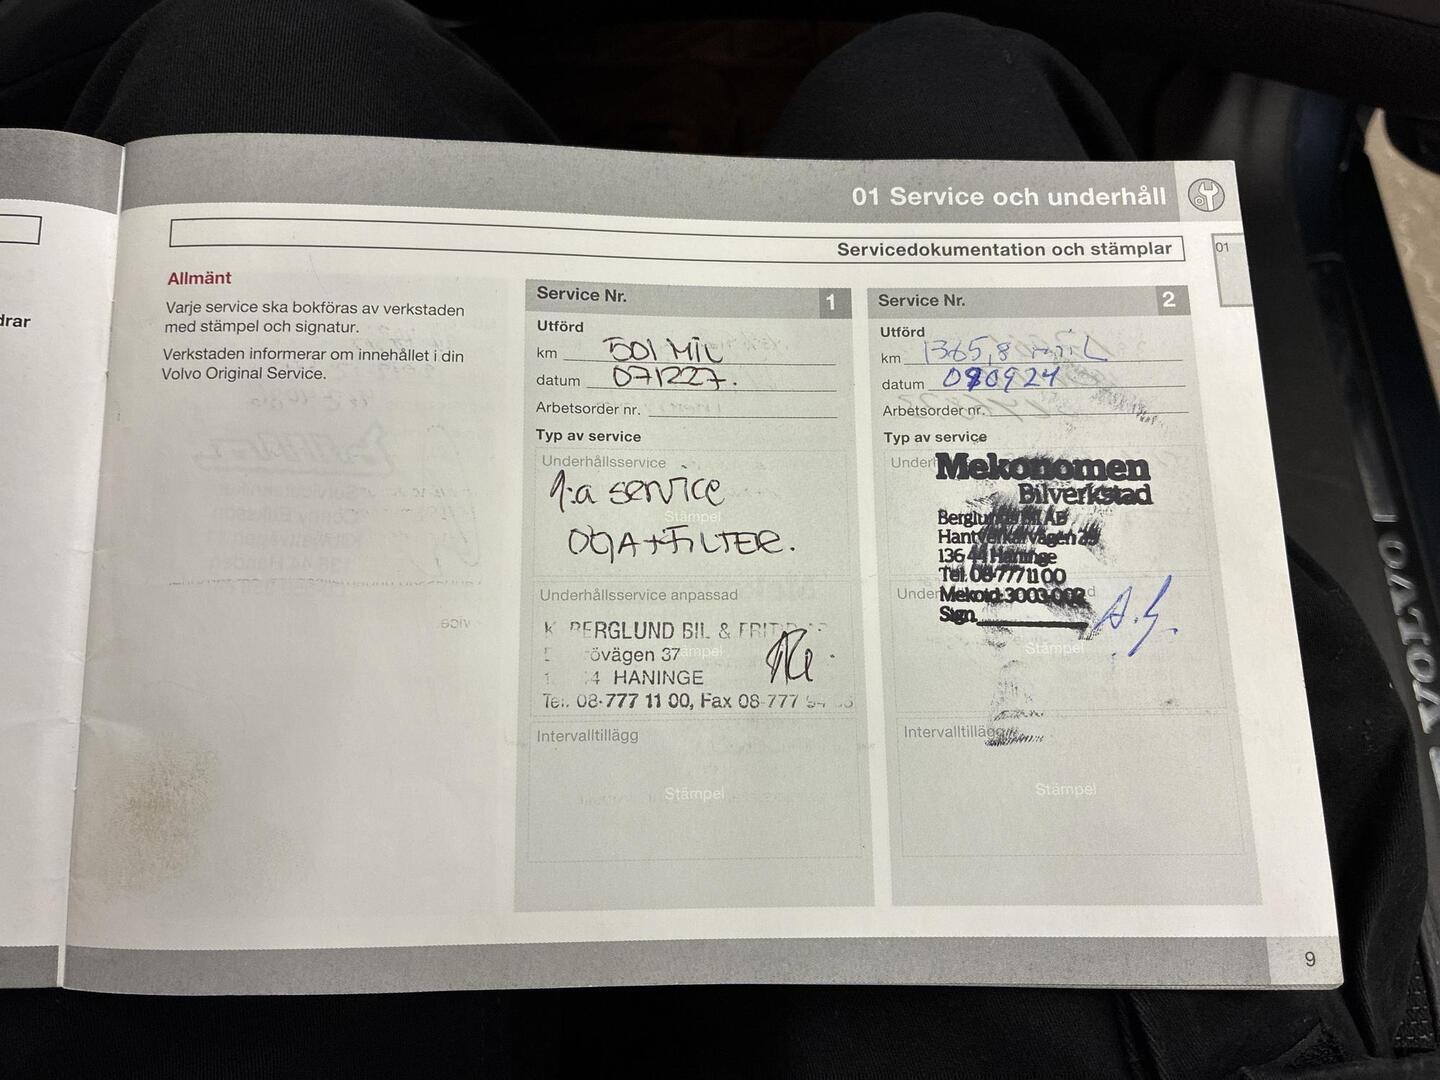 drar
01 Service och underhåll
Servicedokumentation och stämplar
01
Allmänt
Varje service ska bokföras av verkstaden
med stämpel och signatur.
Verkstaden informerar om innehållet i din
Volvo Original Service.
Service Nr. 1
Utförd
km 501 MIL
datum 071227.
Arbetsorder nr.
Typ av service
Underhållsservice
1:a service
Stämpel
OLJA + FILTER.
Underhållsservice anpassad
BERGLUND BIL &
övägen 37
Stämpel
HANINGE
Tel. 08-777 11 00, Fax 08-777
Intervalltillägg
Stämpel
Service Nr. 2
Utförd
km 1365,8 mil
datum 080924
Arbetsorder nr.
Typ av service
Mekonomen
Bilverkstad
Hantverkarvägen 29
136 44 Haninge
Tel. 08-777 11 00
Mekoid: 3003-002
Sign.
A.S.
Stämpel
Intervalltillägg
Stämpel
9
VOLVO